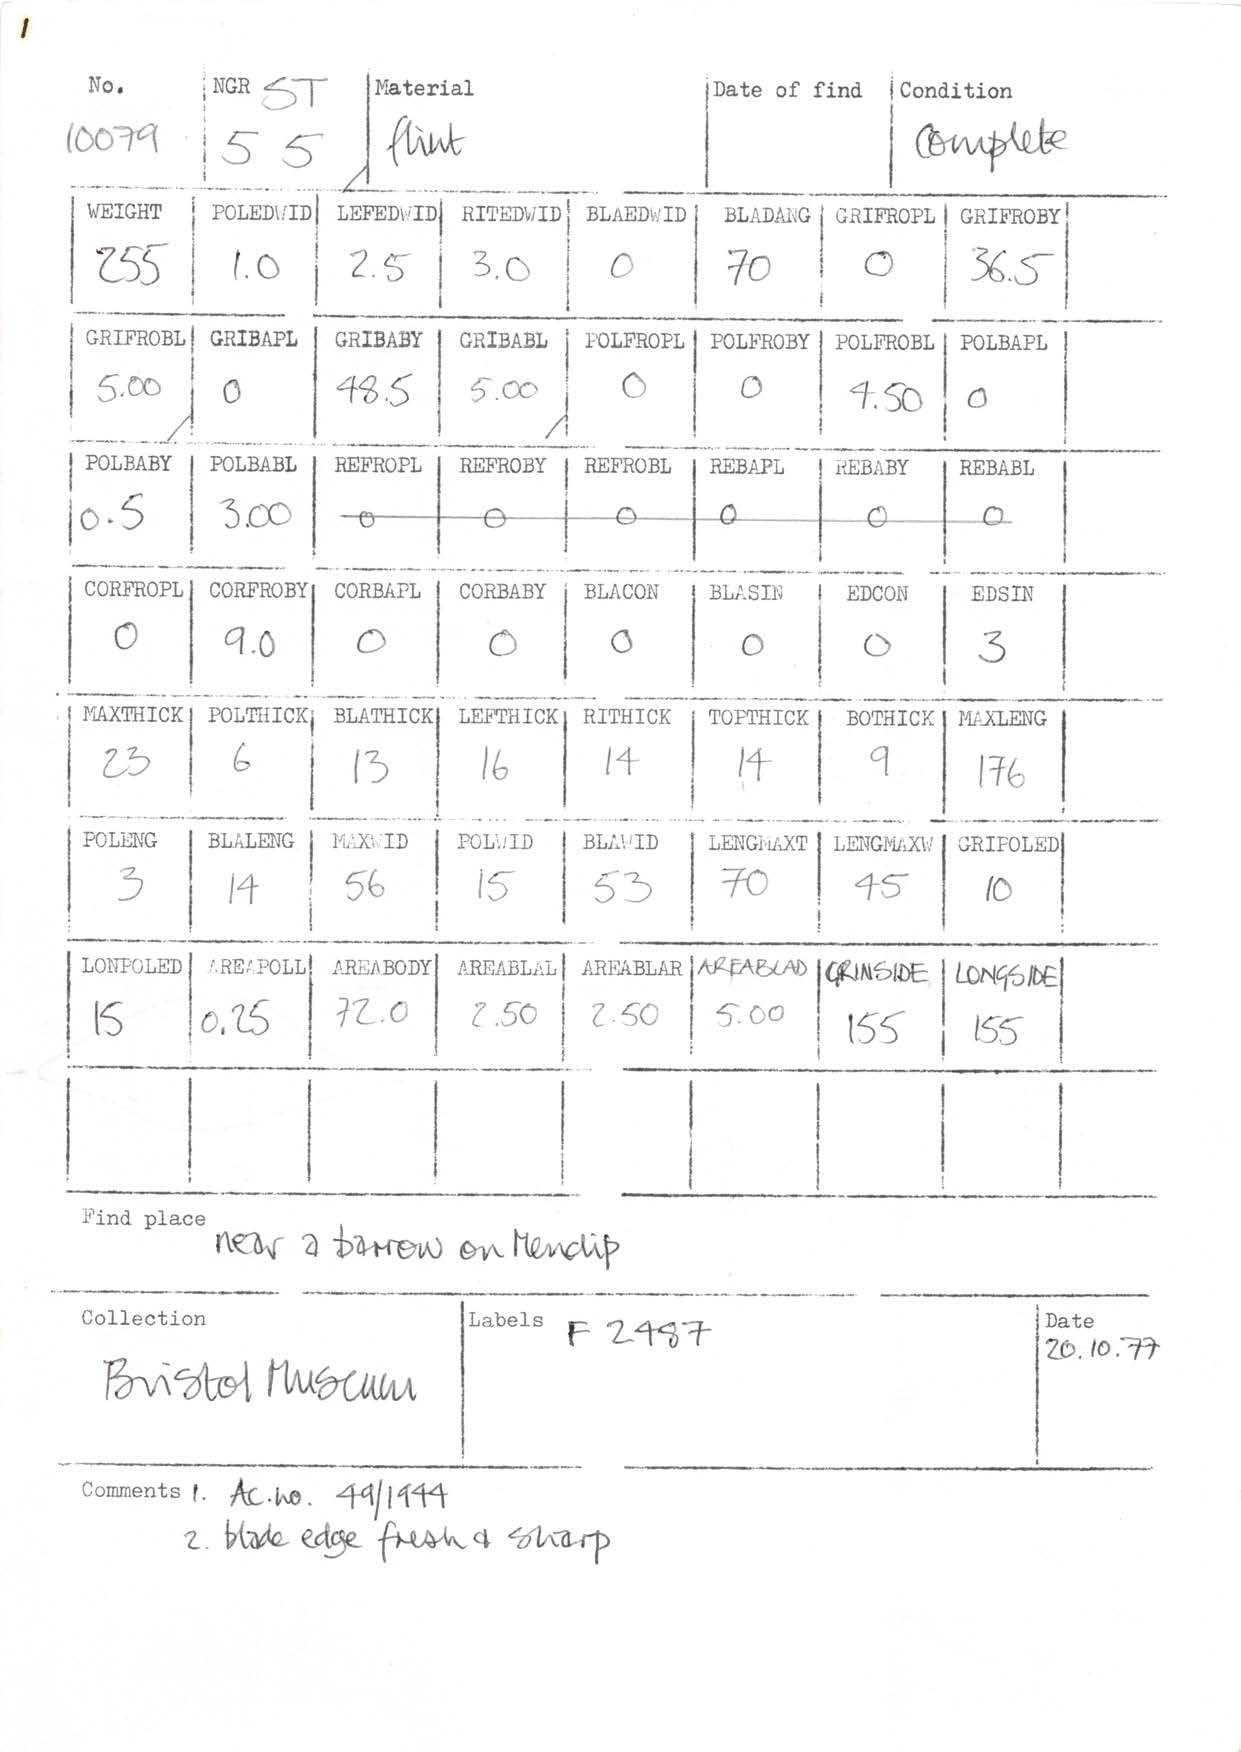 1
No. NGR ST Material Date of find Condition
10079 5 5 flint complete
WEIGHT POLEDWID LEFEDWID RITEDWID BLAEDWID BLADANG GRIFROPL GRIFROBY
255 1.0 2.5 3.0 0 70 0 36.5
GRIFROBL GRIBAPL GRIBABY GRIBABL POLFROPL POLFROBY POLFROBL POLBAPL
5.00 0 48.5 5.00 0 0 4.50 0
POLBABY POLBABL REFROPL REFROBY REFROBL REBAPL REBABY REBABL
0.5 3.00 0 0 0 0 0 0
CORFROPL CORFROBY CORBAPL CORBABY BLACON BLASIN EDCON EDSIN
0 9.0 0 0 0 0 0 3
MAXTHICK POLTHICK BLATHICK LEFTHICK RITHICK TOPTHICK BOTHICK MAXLENG
23 6 13 16 14 14 9 176
POLENG BLALENG MAXWID POLWID BLAWID LENGMAXT LENGMAXW GRIPOLED
3 14 56 15 53 70 45 10
LONPOLED AREAPOLL AREABODY AREABLAL AREABLAR AREABLAD GRINSIDE LONGSIDE
15 0.25 72.0 2.50 2.50 5.00 155 155
Find place near a barrow on Mendip
Collection Labels F 2487 Date
20.10.77
Bristol Museum
Comments 1. Ac.no. 49/1944
2. blade edge fresh & sharp